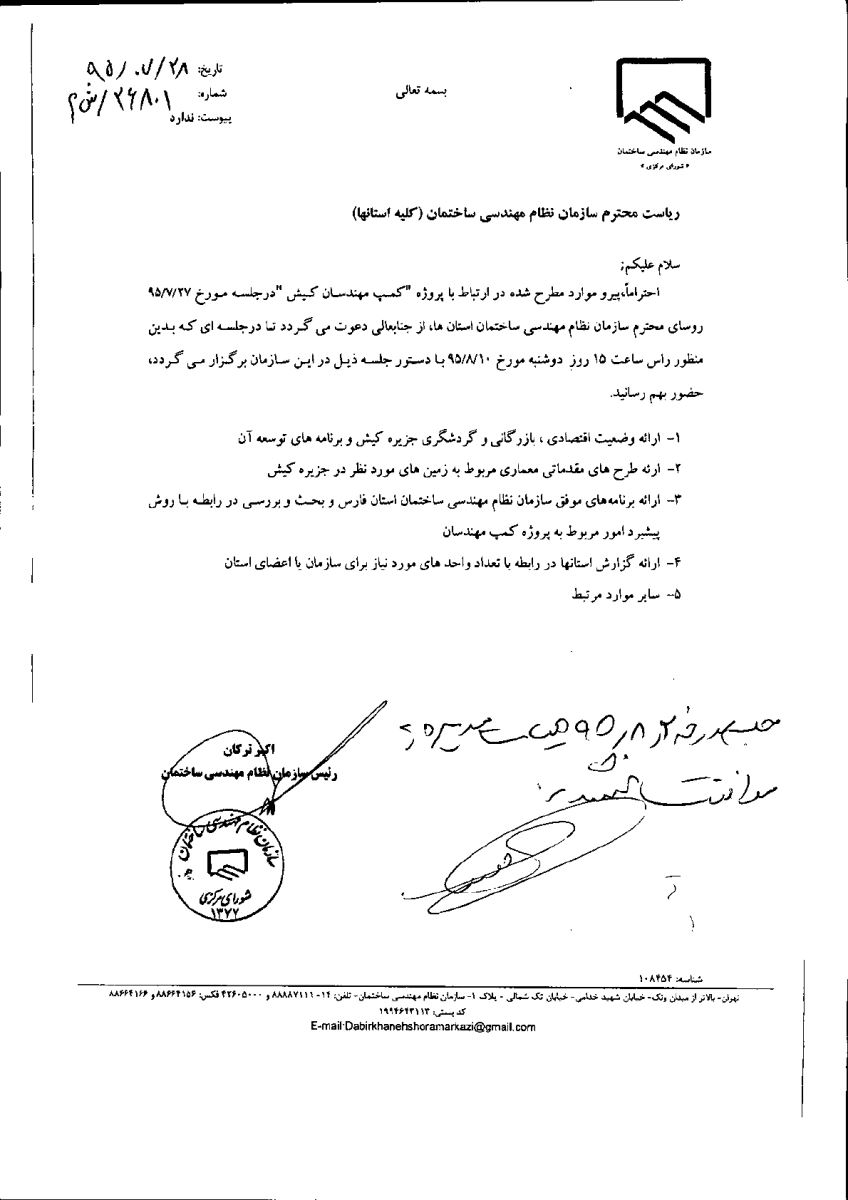 بسمه تعالی
تاریخ: ۹۵/۰۷/۲۸
شماره: ۲۶۸۰۱/ش م
پیوست: ندارد
سازمان نظام مهندسی ساختمان
« شورای مرکزی »
ریاست محترم سازمان نظام مهندسی ساختمان (کلیه استانها)
سلام علیکم;
احتراماً،پیرو موارد مطرح شده در ارتباط با پروژه "کمپ مهندسان کیش "درجلسه مورخ ۹۵/۷/۲۷
روسای محترم سازمان نظام مهندسی ساختمان استان ها، از جنابعالی دعوت می گردد تا درجلسه ای که بدین
منظور راس ساعت ۱۵ روز دوشنبه مورخ ۹۵/۸/۱۰ با دستور جلسه ذیل در این سازمان برگزار می گردد،
حضور بهم رسانید.
۱- ارائه وضعیت اقتصادی ، بازرگانی و گردشگری جزیره کیش و برنامه های توسعه آن
۲- ارئه طرح های مقدماتی معماری مربوط به زمین های مورد نظر در جزیره کیش
۳- ارائه برنامه‌های موفق سازمان نظام مهندسی ساختمان استان فارس و بحث و بررسی در رابطه با روش
پیشبرد امور مربوط به پروژه کمپ مهندسان
۴- ارائه گزارش استانها در رابطه با تعداد واحد های مورد نیاز برای سازمان یا اعضای استان
۵- سایر موارد مرتبط
اکبر ترکان
رئیس سازمان نظام مهندسی ساختمان
سازمان نظام مهندسی ساختمان
شورای مرکزی
۱۳۷۲
شناسه: ۱۰۸۴۵۴
تهران- بالاتر از میدان ونک- خیابان شهید خدامی- خیابان تک شمالی - پلاک ۱- سازمان نظام مهندسی ساختمان- تلفن: ۱۴-۸۸۸۸۷۱۱۱ و ۴۲۶۰۵۰۰۰ فکس: ۸۸۶۶۴۱۵۶و ۸۸۶۶۴۱۶۶
کد پستی: ۱۹۹۴۶۴۳۱۱۳
E-mail:Dabirkhanehshoramarkazi@gmail.com